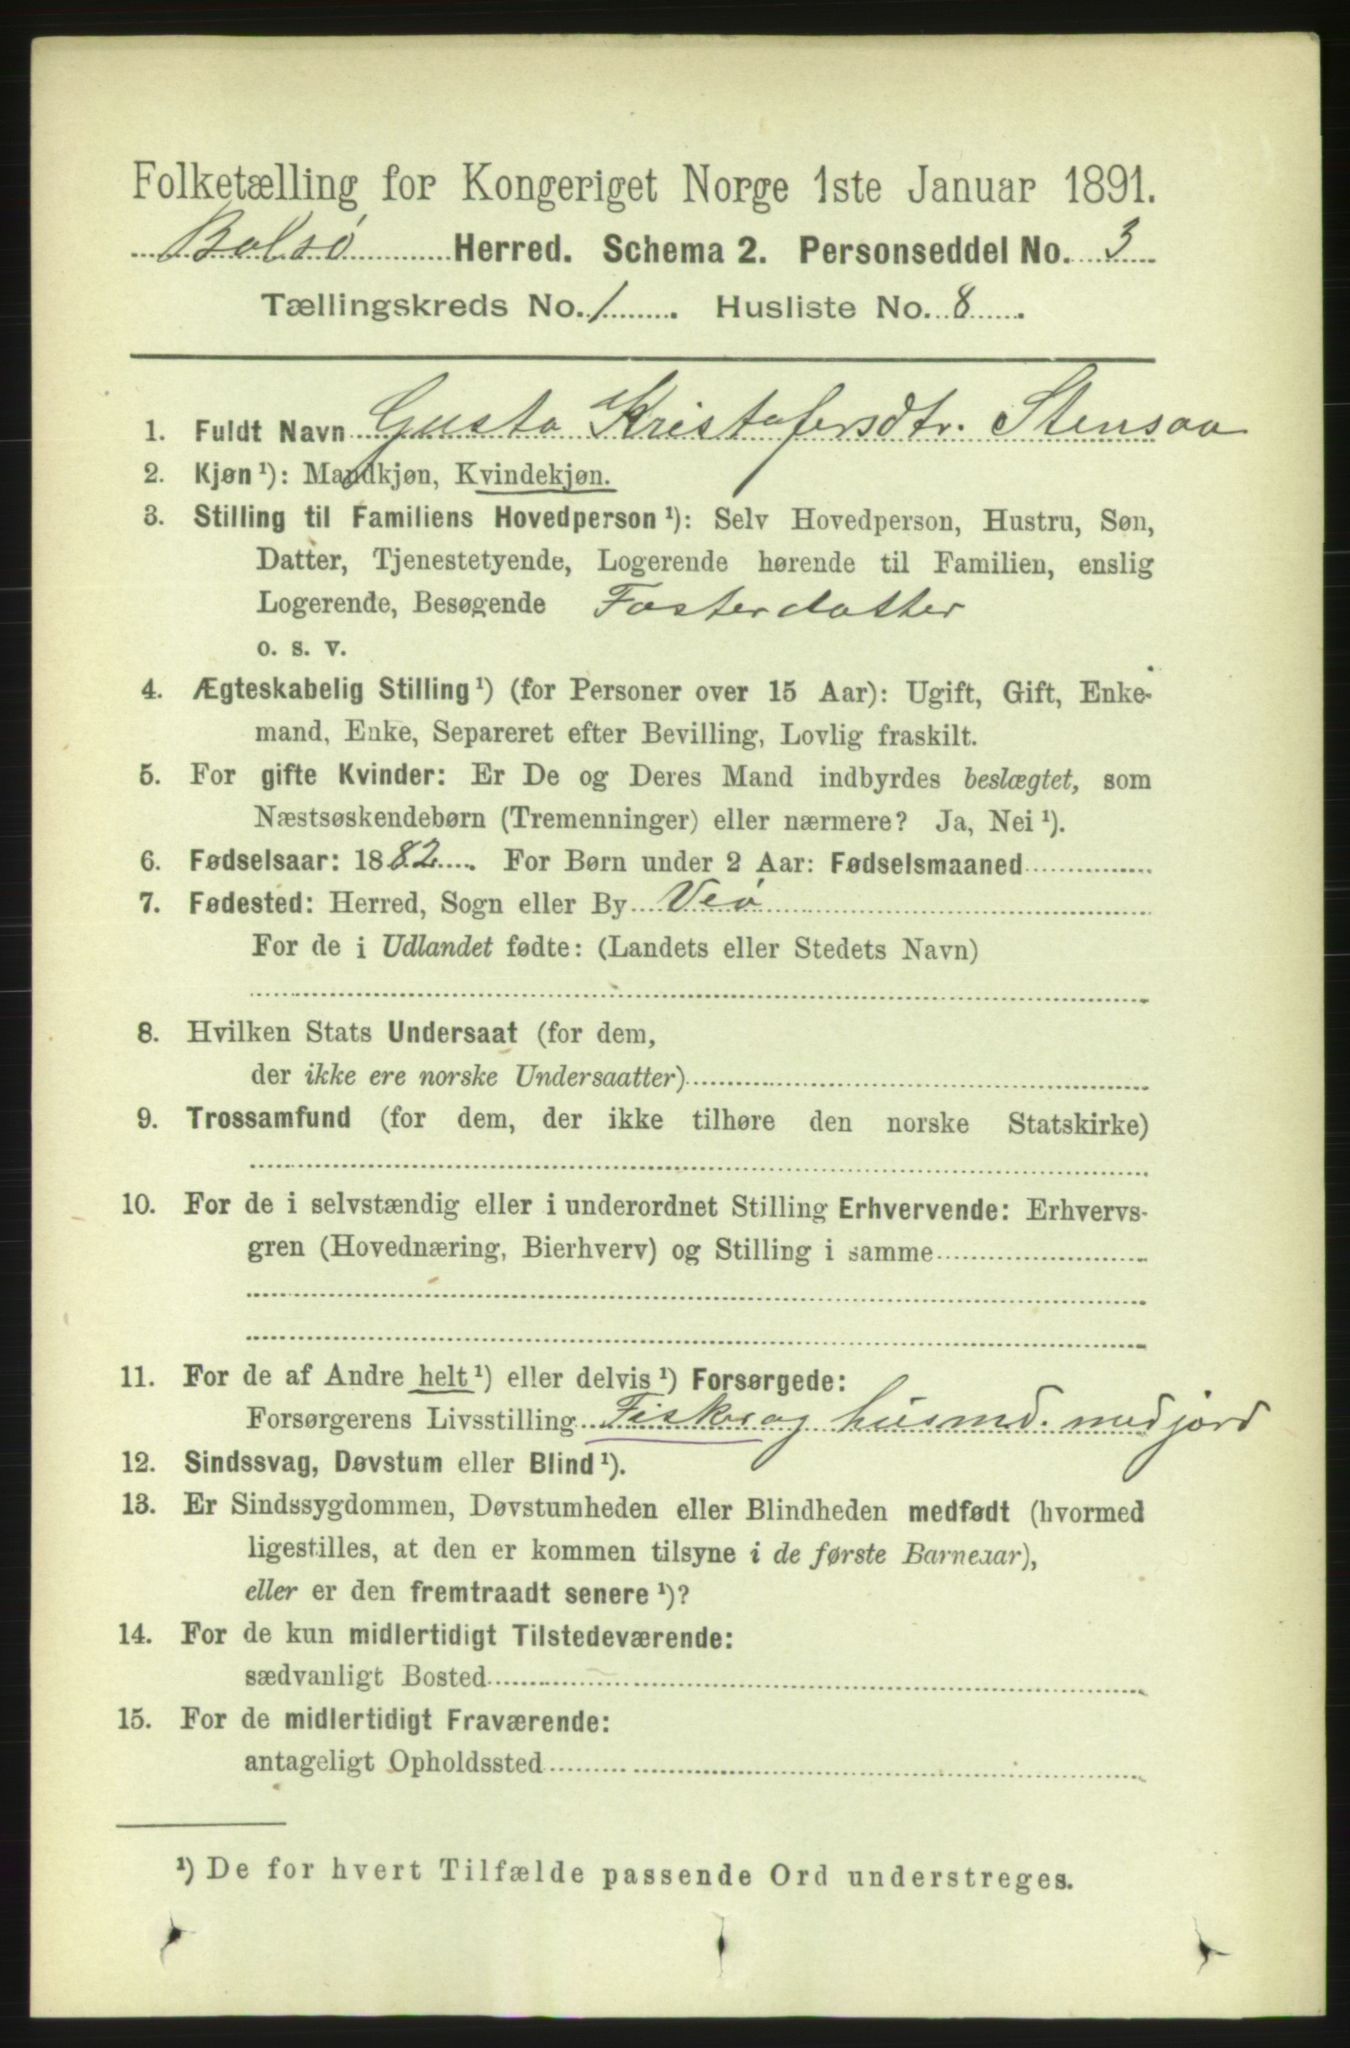 Folketælling for Kongeriget Norge 1ste Januar 1891.
Bolsø Herred. Schema 2. Personseddel No. 3
Tællingskreds No. 1 . Husliste No. 8 .
1. Fuldt Navn Gusta Kristofersdtr. Stensaa
2. Kjøn ¹): Mandkjøn, Kvindekjøn.
3. Stilling til Familiens Hovedperson ¹): Selv Hovedperson, Hustru, Søn,
Datter, Tjenestetyende, Logerende hørende til Familien, enslig
Logerende, Besøgende Fosterdatter
o. s. v.
4. Ægteskabelig Stilling ¹) (for Personer over 15 Aar): Ugift, Gift, Enke-
mand, Enke, Separeret efter Bevilling, Lovlig fraskilt.
5. For gifte Kvinder: Er De og Deres Mand indbyrdes beslægtet, som
Næstsøskendebørn (Tremenninger) eller nærmere? Ja, Nei ¹).
6. Fødselsaar: 1882 For Børn under 2 Aar: Fødselsmaaned
7. Fødested: Herred, Sogn eller By Veø
For de i Udlandet fødte: (Landets eller Stedets Navn)
8. Hvilken Stats Undersaat (for dem,
der ikke ere norske Undersaatter)
9. Trossamfund (for dem, der ikke tilhøre den norske Statskirke)
10. For de i selvstændig eller i underordnet Stilling Erhvervende: Erhvervs-
gren (Hovednæring, Bierhverv) og Stilling i samme
11. For de af Andre helt ¹) eller delvis ¹) Forsørgede:
Forsørgerens Livsstilling Fisker og husmd. med jord
12. Sindssvag, Døvstum eller Blind ¹).
13. Er Sindssygdommen, Døvstumheden eller Blindheden medfødt (hvormed
ligestilles, at den er kommen tilsyne i de første Barneaar),
eller er den fremtraadt senere ¹)?
14. For de kun midlertidigt Tilstedeværende:
sædvanligt Bosted
15. For de midlertidigt Fraværende:
antageligt Opholdssted
¹) De for hvert Tilfælde passende Ord understreges.